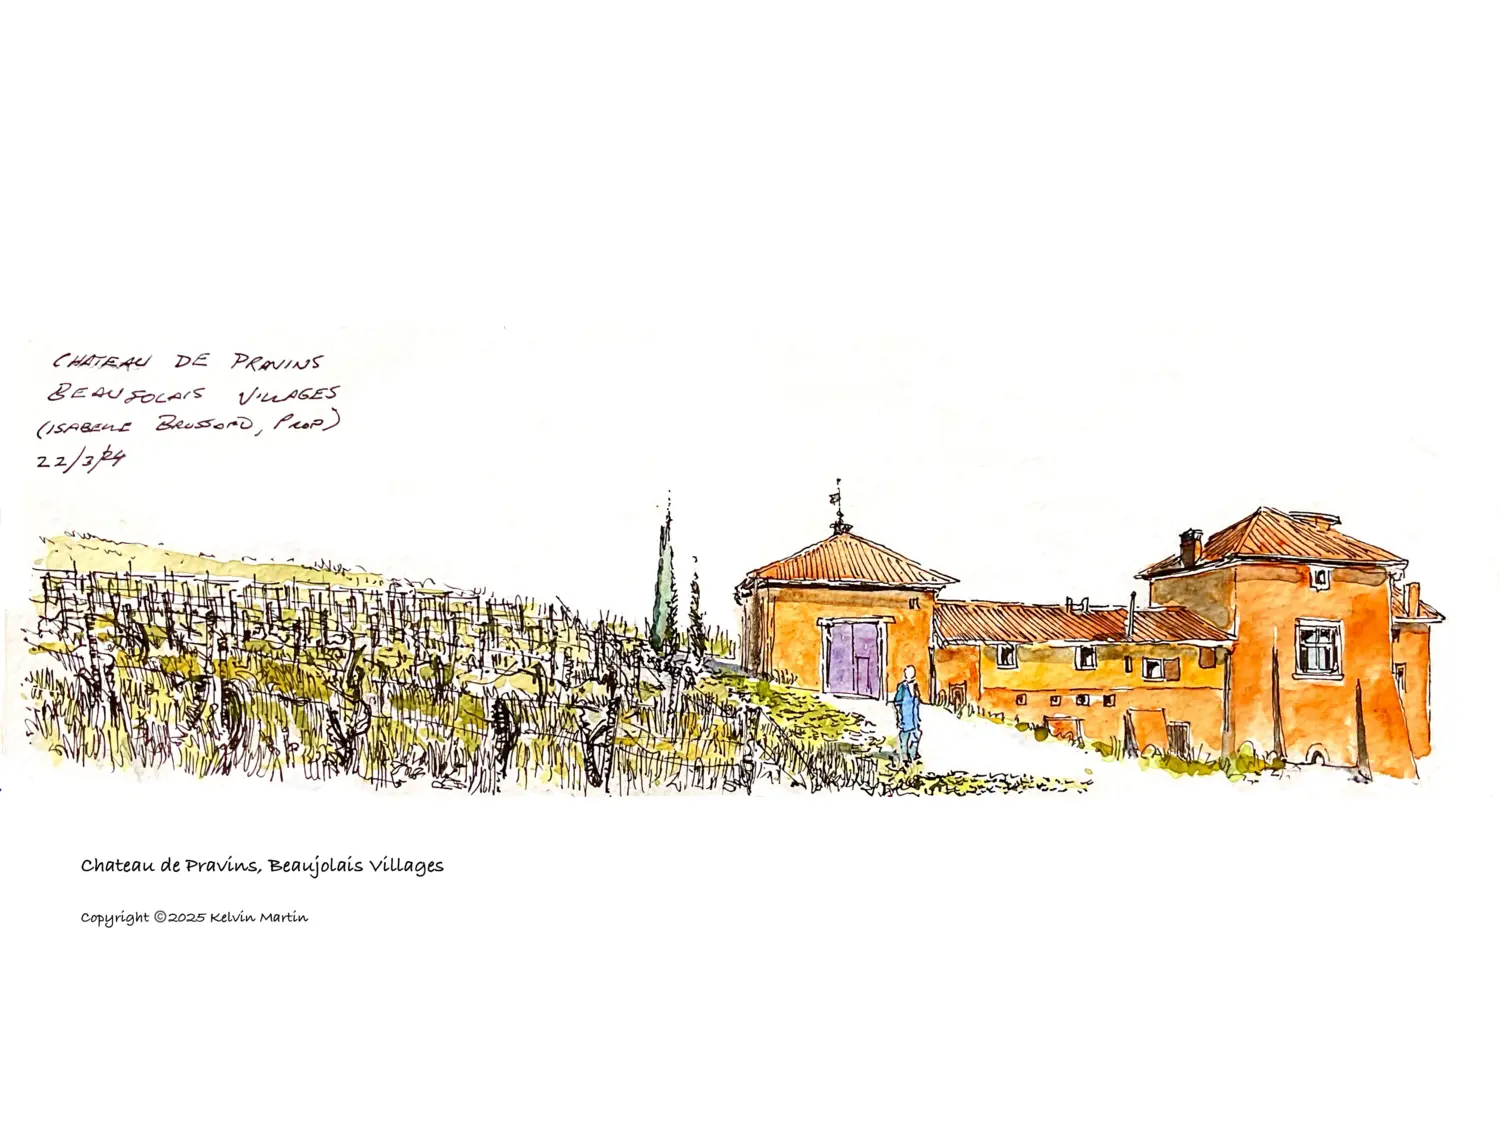 CHATEAU DE PRAVINS
BEAUJOLAIS VILLAGES
(ISABELLE BRUSSARD, PROP)
22/3/24
Chateau de Pravins, Beaujolais Villages
Copyright ©2025 Kelvin Martin